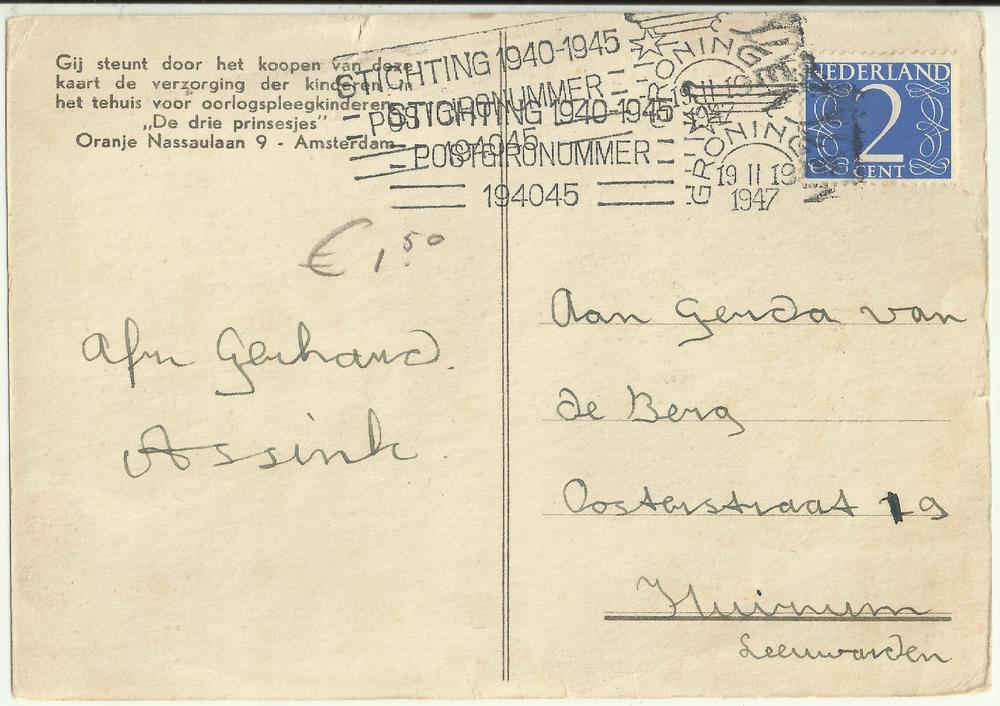 Gij steunt door het koopen van deze
kaart de verzorging der kinderen in
het tehuis voor oorlogspleegkinderen
„De drie prinsesjes”
Oranje Nassaulaan 9 - Amsterdam
STICHTING 1940-1945
POSTGIRONUMMER
194045
GRONINGEN
19 II 19
1947
STICHTING 1940-1945
POSTGIRONUMMER
194045
GRONINGEN
19 II 19
1947
NEDERLAND
2
CENT
€ 1,50
Afn Gerhard
Assink.
Aan Gerda van
de Berg
Oosterstraat 19
Huizum
Leeuwarden